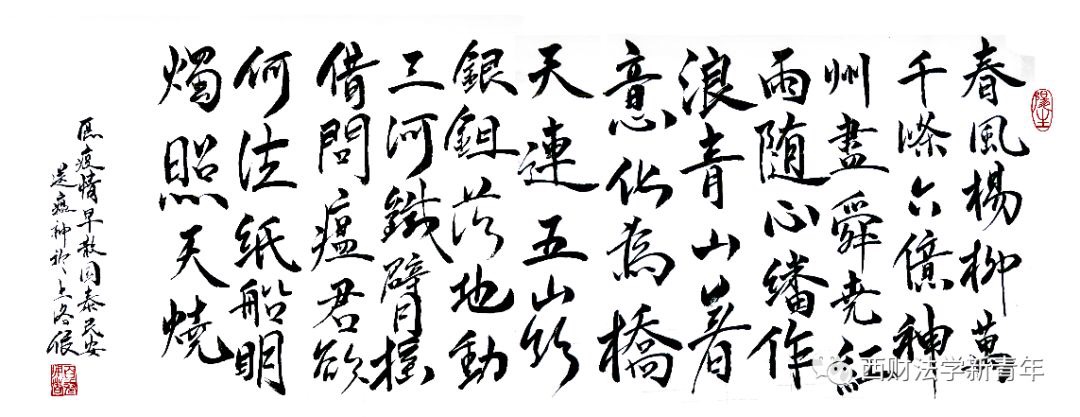 春風楊柳萬
千條六億神
州盡舜堯紅
雨随心繙作
浪青山着
意化為橋
天連五岭
銀鉏落地動
三河鐵臂摇
借問瘟君欲
何往紙船明
燭照天燒
愿疫情早散国泰民安
送瘟神於上洛
西财法学新青年